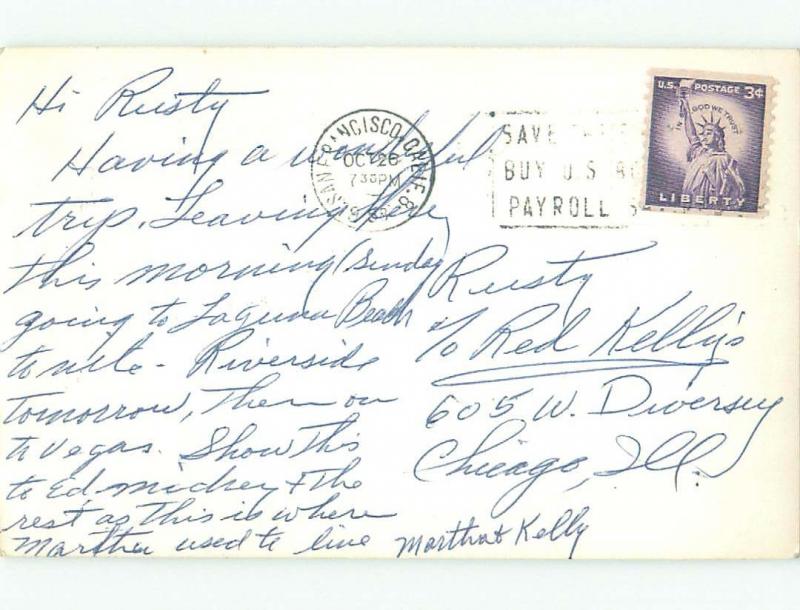 Hi Rusty
Having a wonderful
trip. Leaving here
this morning (Sunday)
going to Laguna Beach
to nite - Riverside
tomorrow, then on
to Vegas. Show this
to Ed Mickey + the
rest as this is where
Martha used to live
Martha + Kelly
Rusty
c/o Red Kelly's
605 W. Diversey
Chicago, Ill.
SAN FRANCISCO, CALIF. 8
OCT 26
730 PM
SAVE
BUY U.S.
PAYROLL
U.S. POSTAGE 3¢
IN GOD WE TRUST
LIBERTY